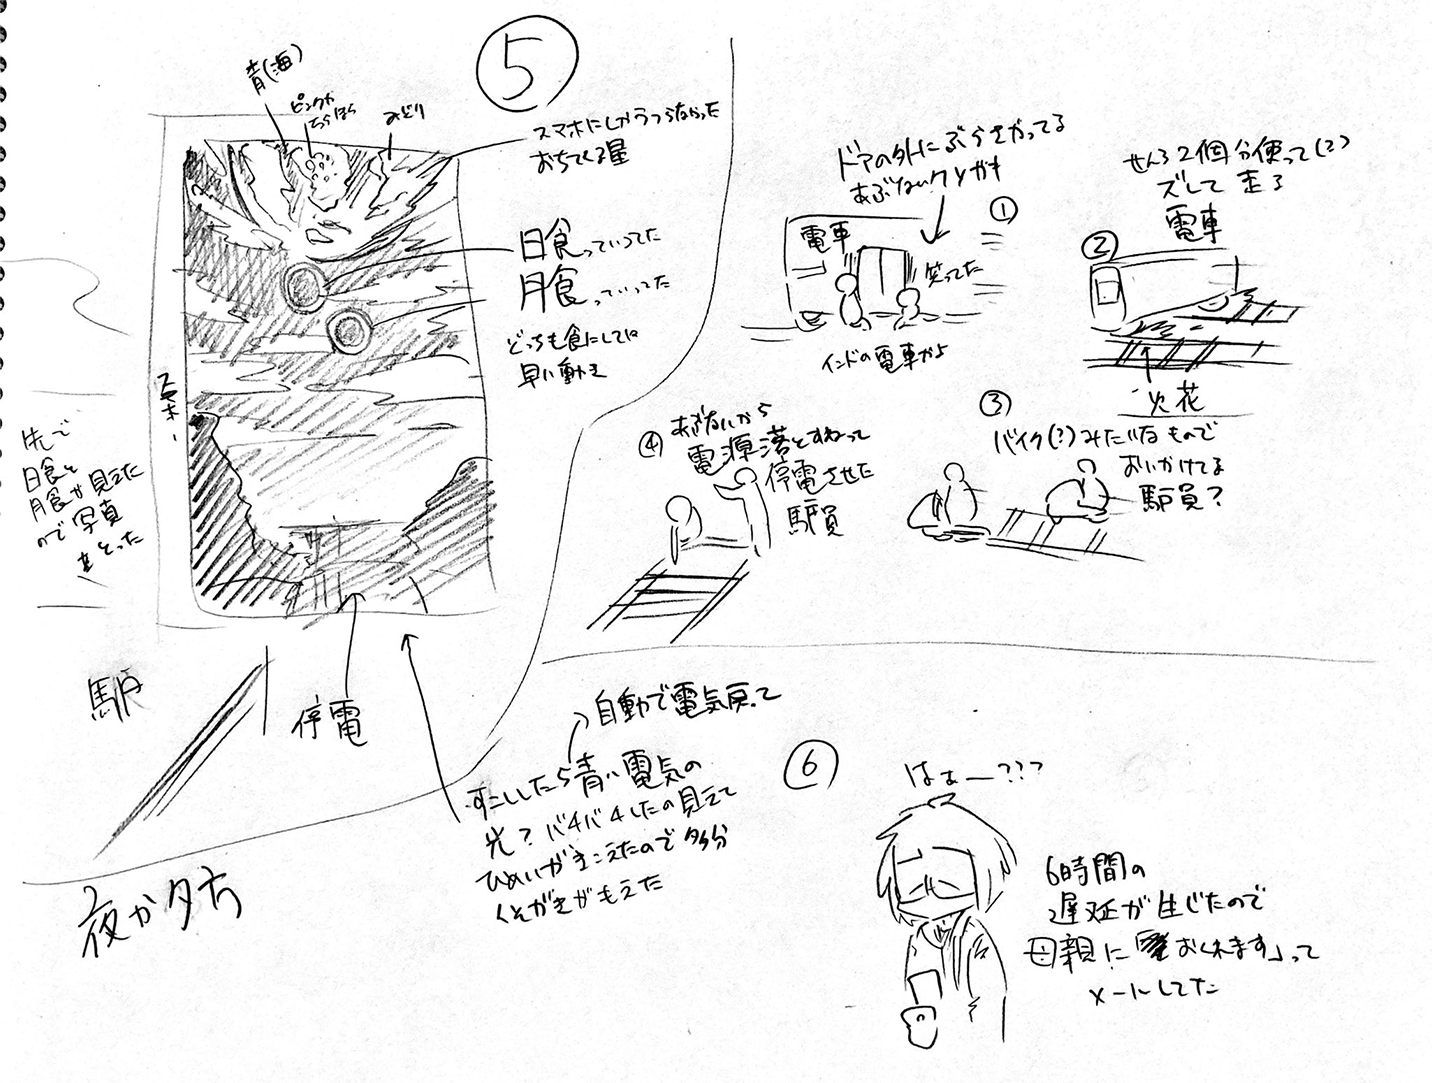 5
青(海)
ピンクが
ちらほら
みどり
スマホにしかうつらなかった
おちてくる星
日食っていってた
月食っていってた
どっちも食にしては
早い動き
先で
日食と
月食が見えた
ので写真
をとった
駅
停電
夜か夕方
→自動で電気戻って
すこししたら青い電気の
光？バチバチしたの見えて
ひめいがきこえたので多分
くそがきがもえた
ドアの外にぶらさがってる
あぶないクソガキ
①
電車
笑ってた
インドの電車かよ
せんろ2個分使って(?)
ズレて走る
電車
②
火花
③
バイク(?)みたいなもので
おいかけてる
駅員？
④
あぶないから
電源落とすねって
停電させた
駅員
⑥
はぁー???
6時間の
遅延が生じたので
母親に「おくれます」って
メールしてた